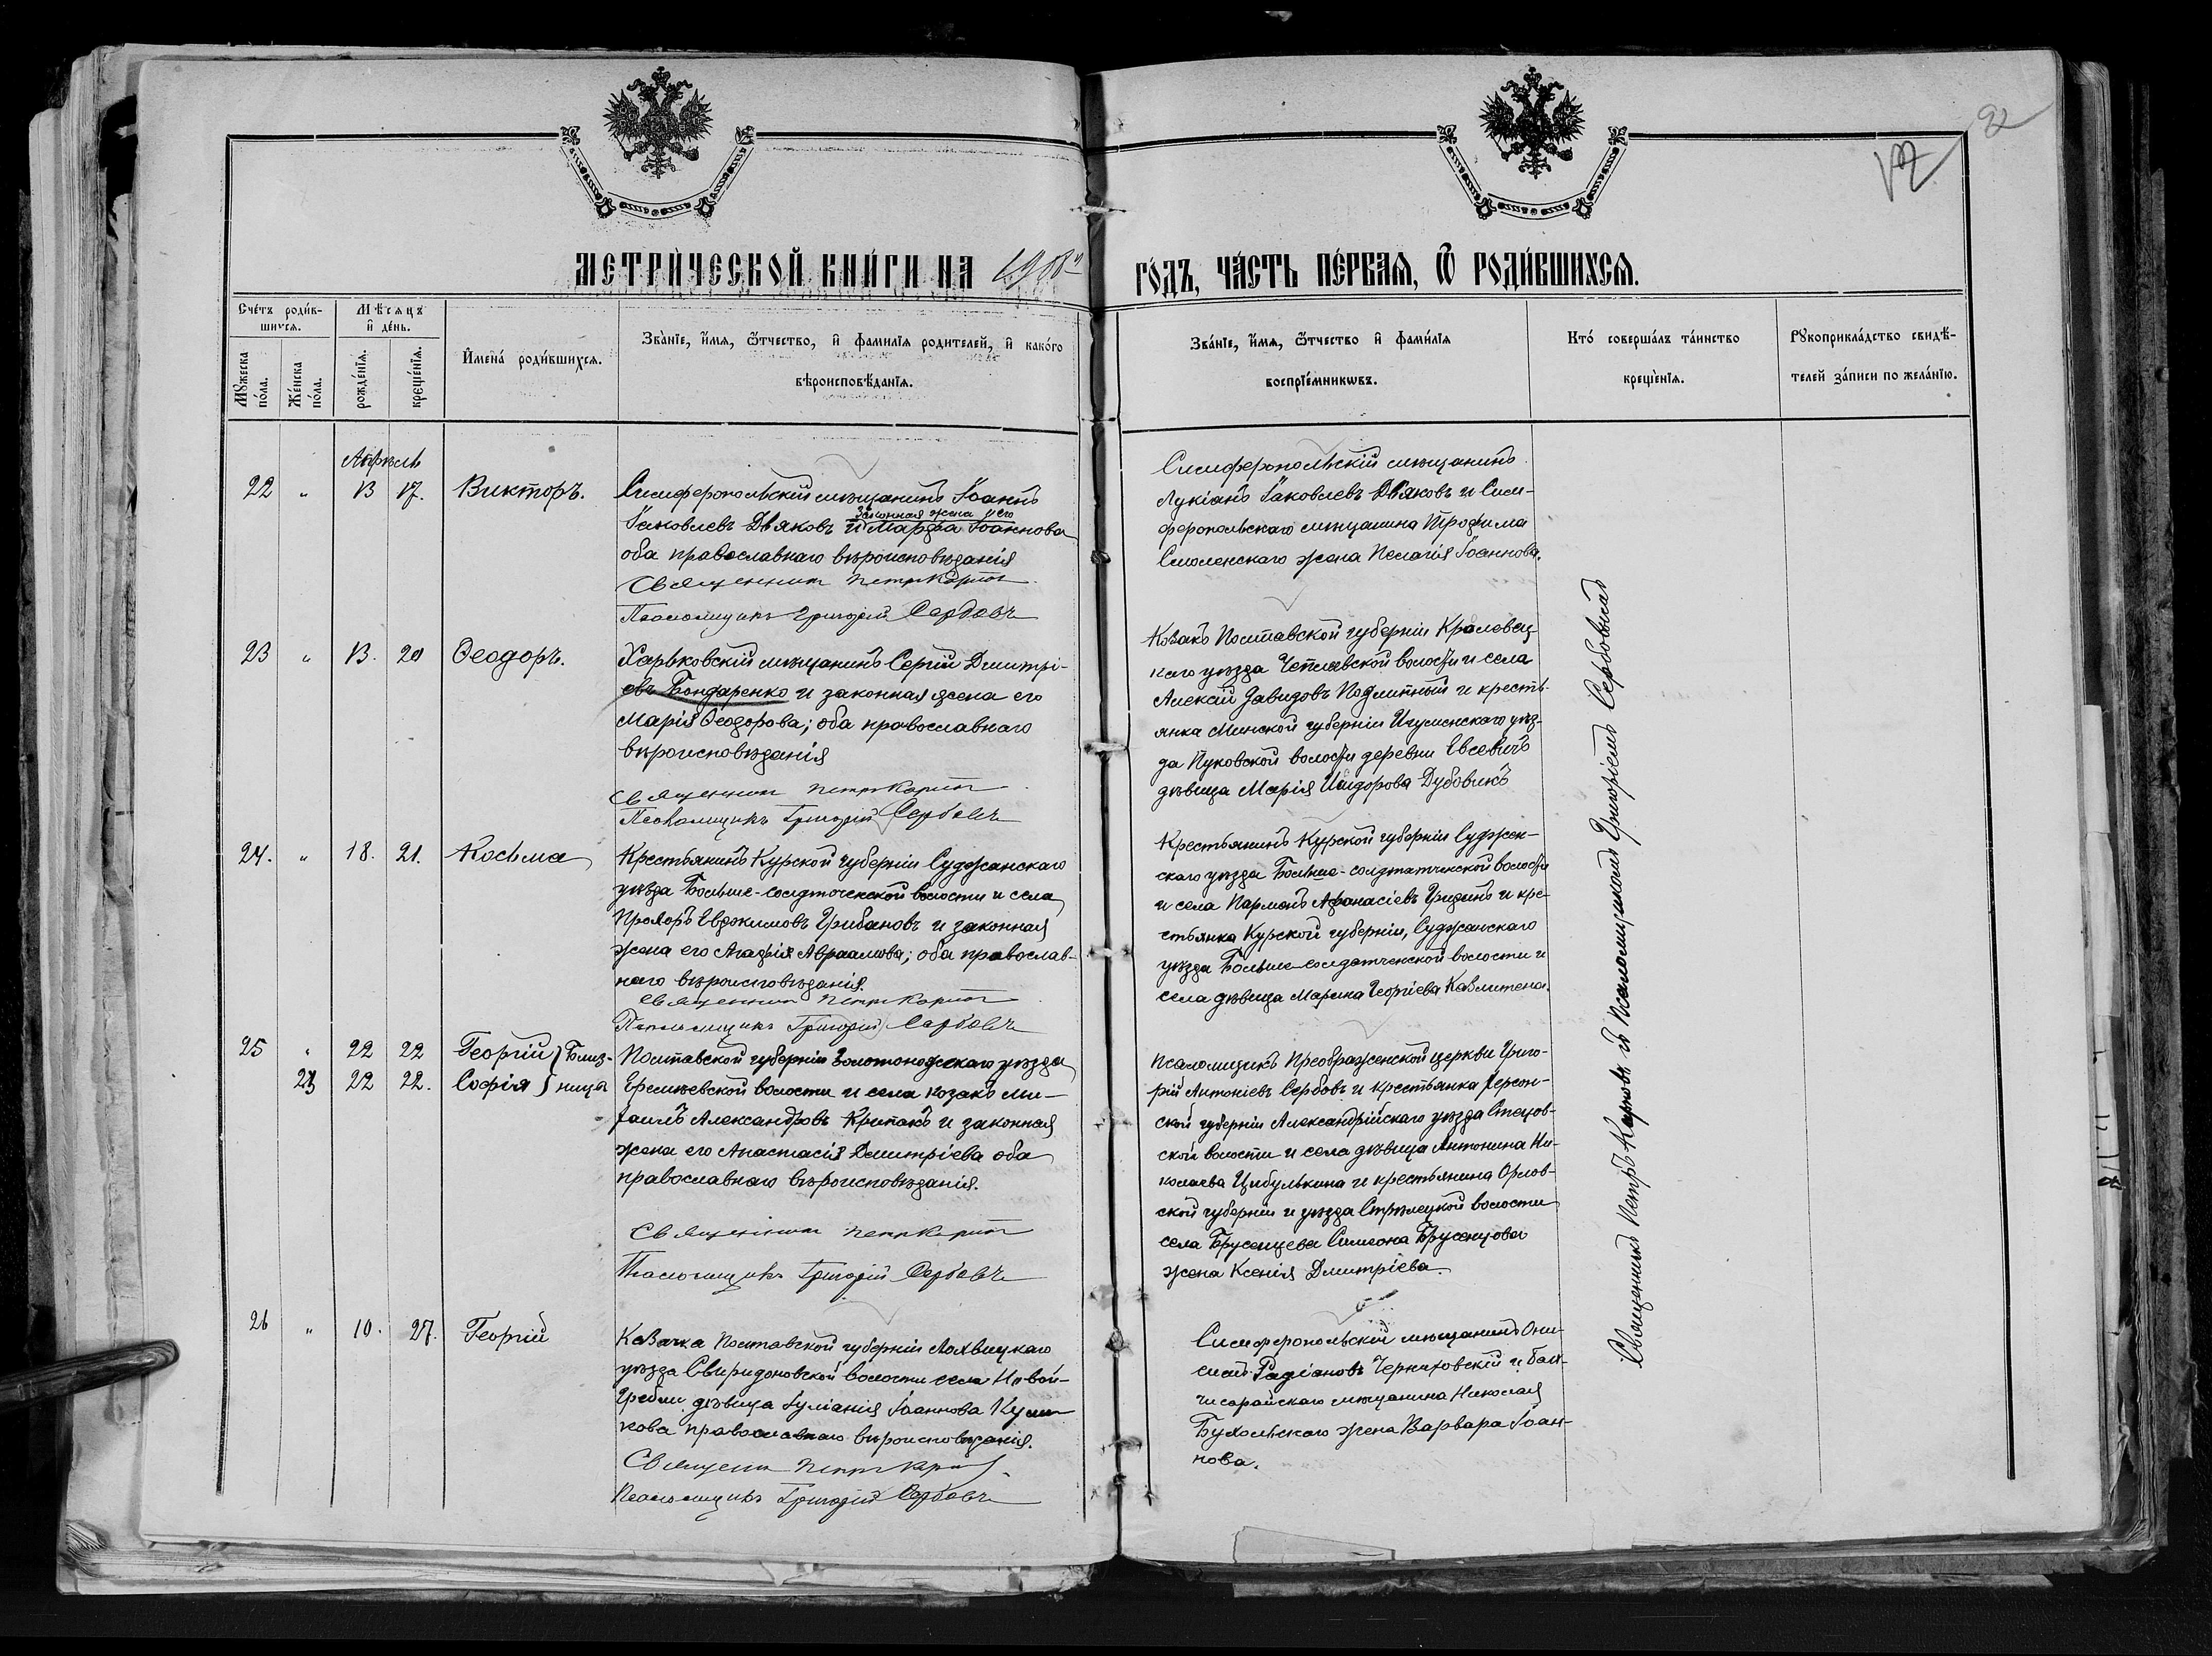 92
МЕТРИЧЕСКОЙ КНИГИ НА 1908й
ГОДЪ, ЧАСТЬ ПЕРВАЯ, Ѿ РОДИВШИХСЯ.
Счетъ родив-
шихся.
Мужеска пола.
Женска пола.
Мѣсяцъ и день.
рожденїя.
крещенїя.
Имена родившихся.
Званїе, имя, ѿчество, и фамилїя родителей, и какого
вѣроисповѣданїя.
Званїе, имя, ѿчество и фамилїя
воспрїемниковъ.
Кто совершалъ таинство
крещенїя.
Рукоприкладство свидѣ-
телей записи по желанїю.
Апрѣль
22 " 13 17. Викторъ.
Симферопольскій мѣщанинъ Іоаннъ
законная жена его
Іаковлевъ Дьяковъ и Марфа Іоаннова
оба православнаго вѣроисповѣданія
Священникъ Петръ Карповъ
Псаломщикъ Григорій Сербовъ
Симферопольскій мѣщанинъ
Лукіанъ Іаковлевъ Дьяковъ и Сим-
феропольскаго мѣщанина Трофима
Смоленскаго жена Пелагія Іоаннова.
23 " 13. 20 Ѳеодоръ.
Харьковскій мѣщанинъ Сергій Димитрі-
евъ Бондаренко и законная жена его
Марія Ѳеодорова; оба православнаго
вѣроисповѣданія
Священникъ Петръ Карповъ
Псаломщикъ Григорій Сербовъ
Козакъ Полтавской губерніи Кролевец-
каго уѣзда волости и села
Алексій Давидовъ и кресть-
янка Минской губерніи Игуменскаго уѣз-
да Пуковской волости деревни Евсевичъ
дѣвица Марія Исидорова Дубовикъ
24. " 18. 21. Косьма
Крестьянинъ Курской губерніи Суджанскаго
уѣзда Больше-солдатченской волости и села
Прохоръ Евдокимовъ Грибановъ и законная
жена его Агафія Авраамова; оба православ-
наго вѣроисповѣданія.
Священникъ Петръ Карповъ
Псаломщикъ Григорій Сербовъ
Крестьянинъ Курской губерніи Суджен-
скаго уѣзда Больше-солдатченской волости
и села Пармонъ Афанасіевъ Гридинъ и кре-
стьянка Курской губерніи, Суджанскаго
уѣзда Больше-солдатченской волости и
села дѣвица Марина Георгіева
25 " 22 22 Георгій } Близ-
23 22 22. Софія } ница
Полтавской губерніи Золотоношскаго уѣзда
Еремѣевской волости и села козакъ Ми-
хаилъ Александровъ Крипакъ и законная
жена его Анастасія Димитріева оба
православнаго вѣроисповѣданія.
Священникъ Петръ Карповъ
Псаломщикъ Григорій Сербовъ
Псаломщикъ Преображенской церкви Григо-
рій Антоніевъ Сербовъ и крестьянка Херсон-
ской губерніи Александрійскаго уѣзда Стецов-
ской волости и села дѣвица Антонина Ни-
колаева Цибулькина и крестьянина Орлов-
ской губерніи и уѣзда Стрѣлецкой волости
села Брусенцева Симеона Брусенцова
жена Ксенія Дмитріева.
26 " 10. 27. Георгій
Казачка Полтавской губерніи Лохвицкаго
уѣзда Свиридоновской волости села Новой-
Гребли дѣвица Іуліанія Іоаннова
православнаго вѣроисповѣданія.
Священникъ Петръ Карповъ
Псаломщикъ Григорій Сербовъ
Симферопольскій мѣщанинъ Они-
симъ Радіановъ Черниховскій и Бах-
чисарайскаго мѣщанина Николая
Бухольскаго жена Варвара Іоан-
нова.
Священникъ Петръ Карповъ съ Псаломщикомъ Григоріемъ Сербовымъ